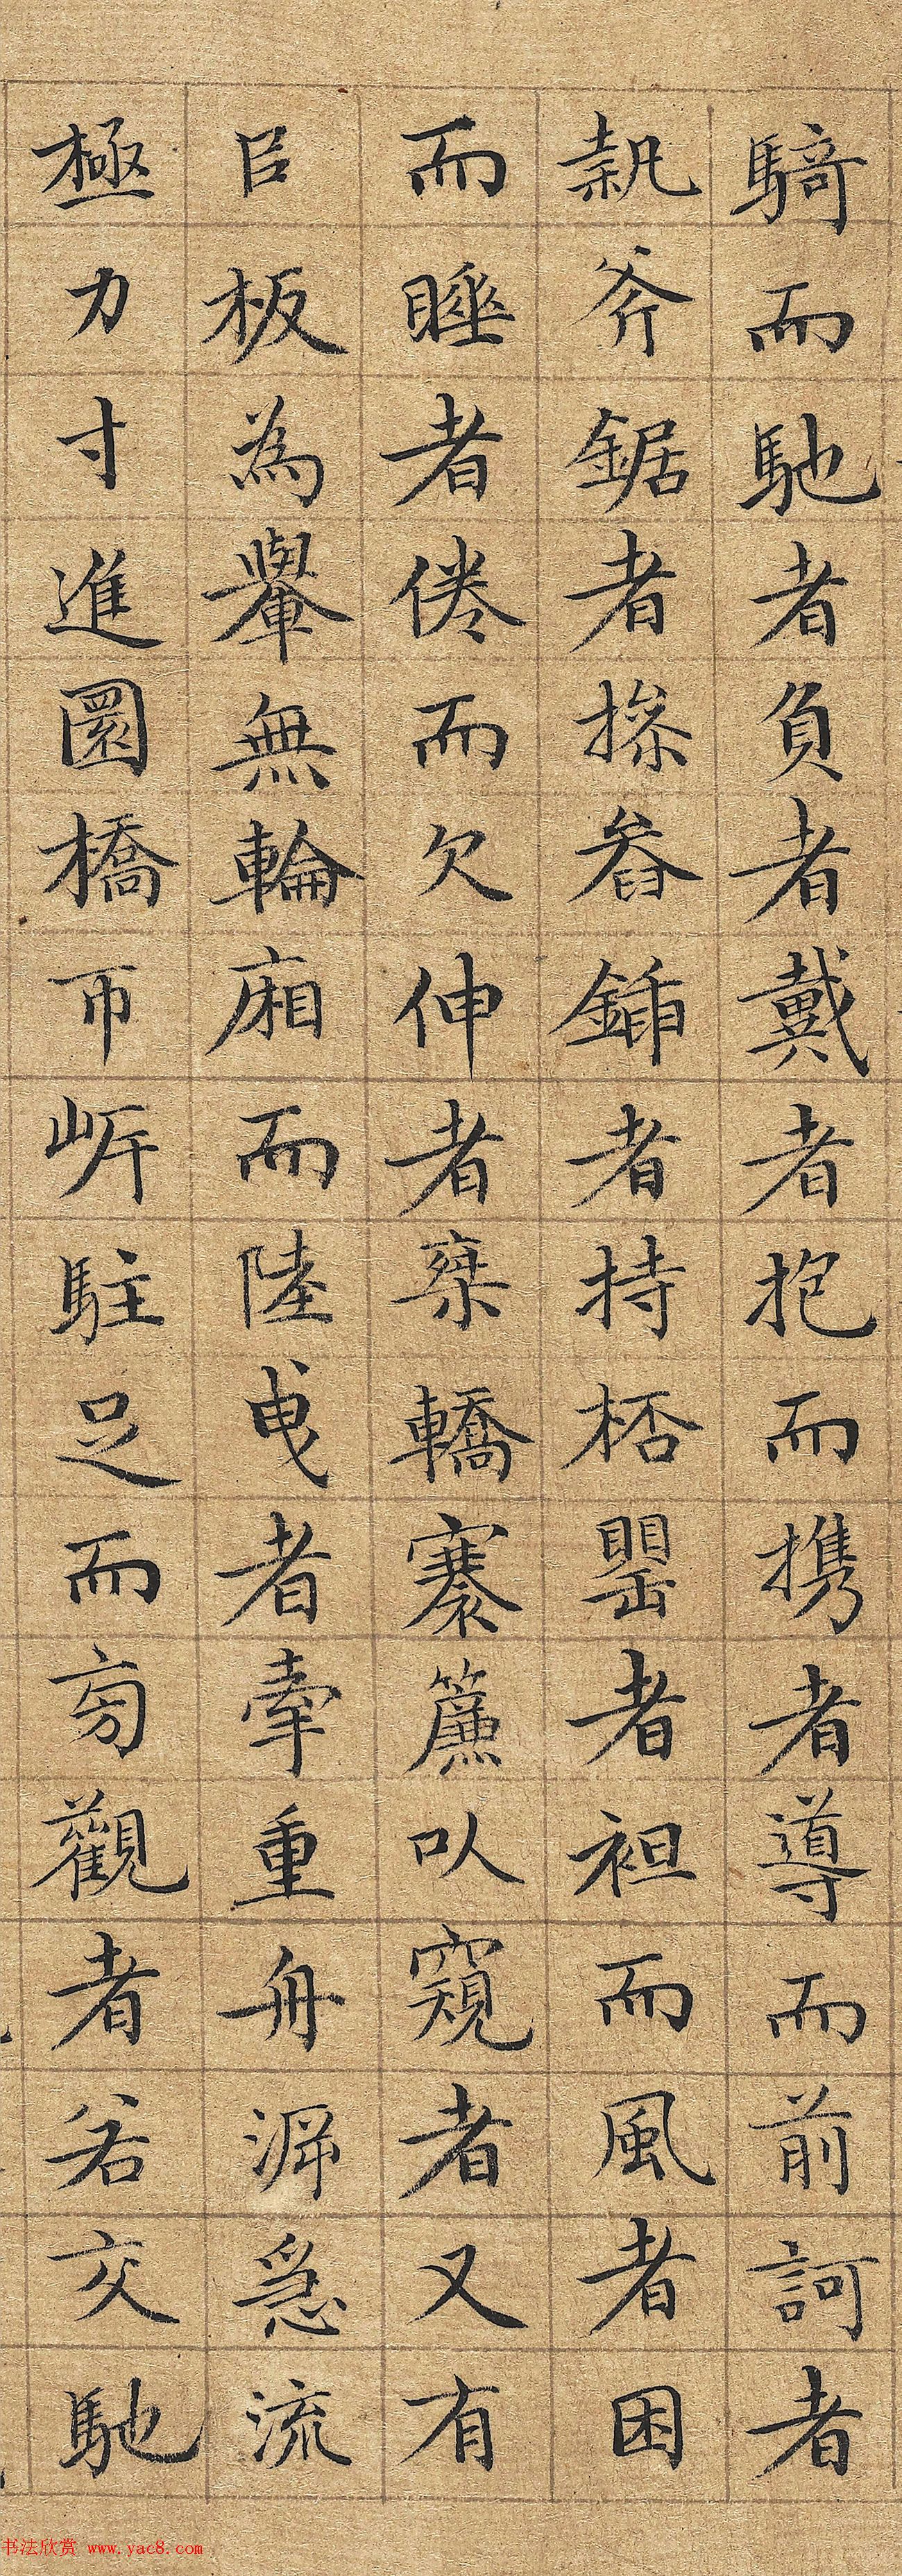 騎而馳者負者戴者抱而携者導而前訶者
執斧鋸者操畚鍤者持桮罌者袒而風者困
而睡者倦而欠伸者乗轎褰簾以窺者又有
以板為轝無輪廂而陸曳者牽重舟泝急流
極力寸進圜橋帀㟁駐足而旁觀者若交馳
书法欣赏 www.yac8.com